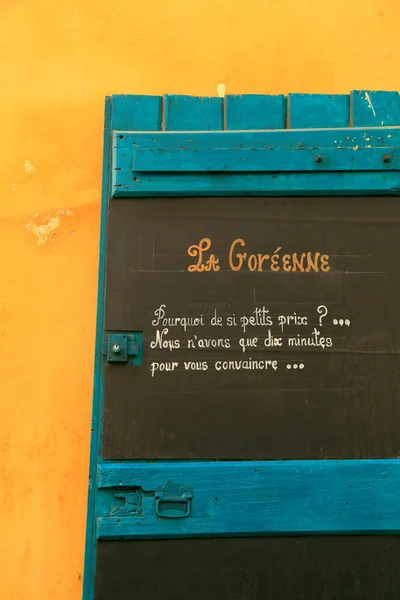 La Goréenne
Pourquoi de si petits prix ? ...
Nous n'avons que dix minutes
pour vous convaincre ...